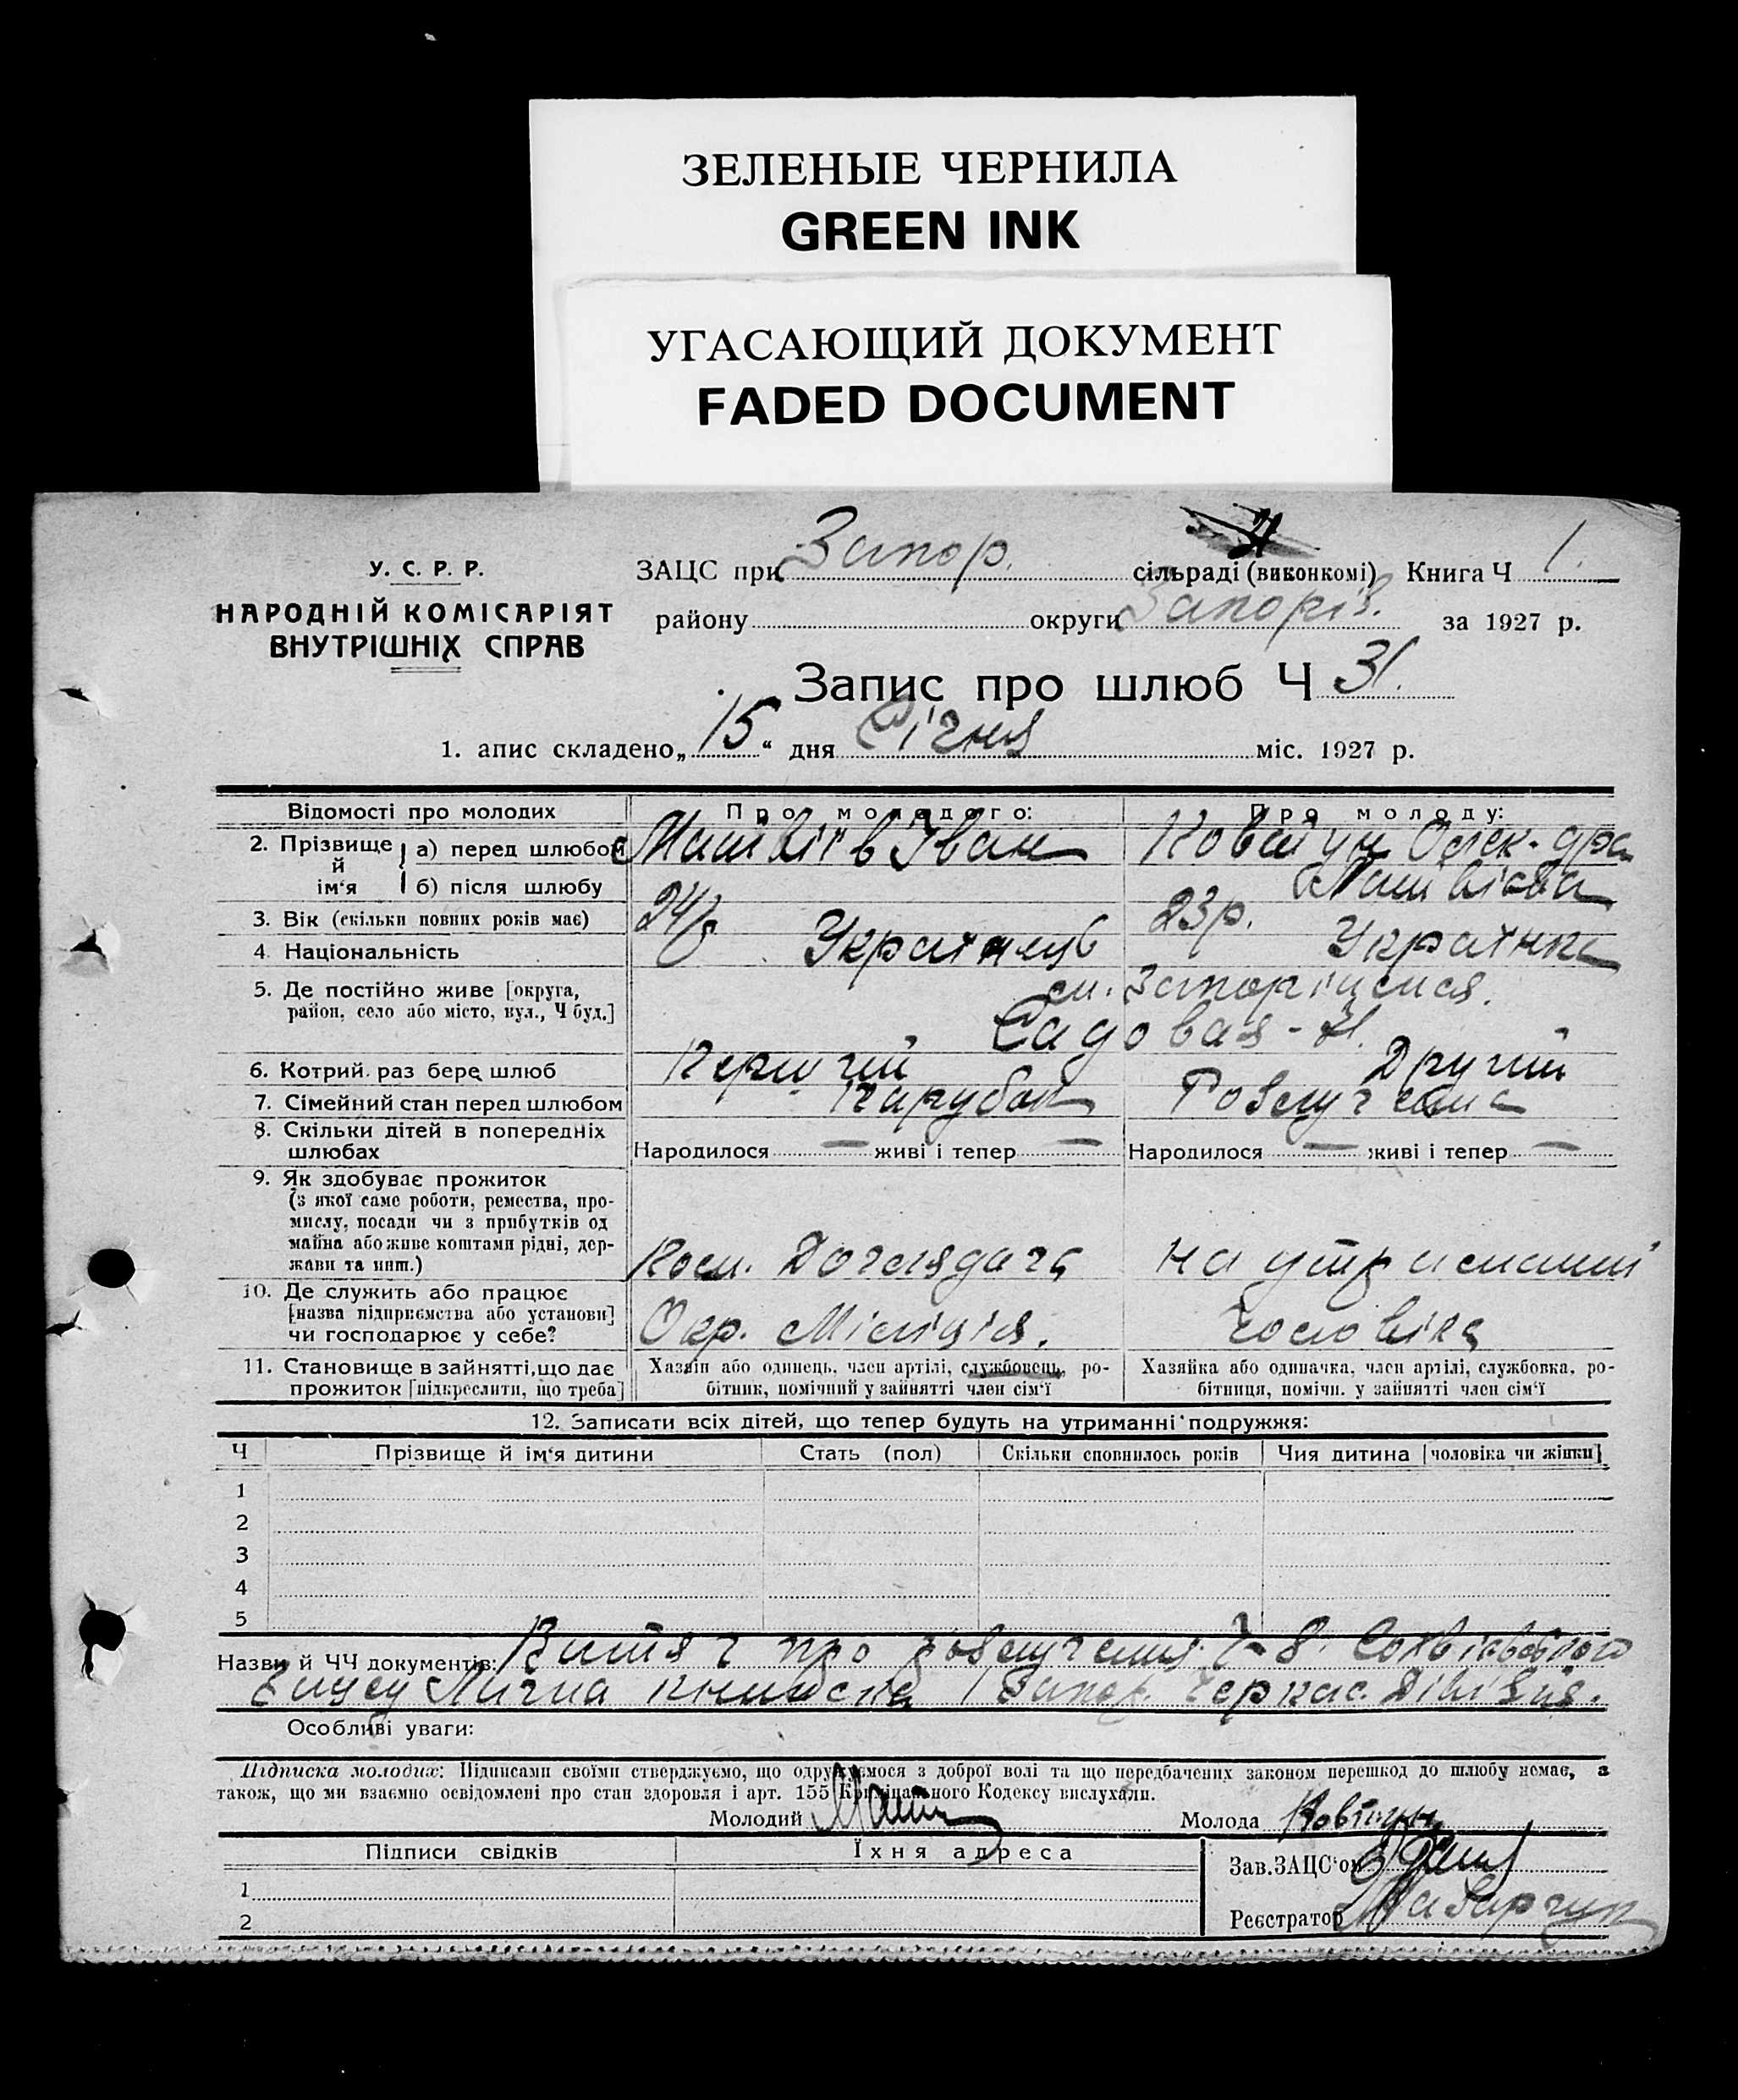 ЗЕЛЕНЫЕ ЧЕРНИЛА
GREEN INK
УГАСАЮЩИЙ ДОКУМЕНТ
FADED DOCUMENT
У. С. Р. Р.
НАРОДНІЙ КОМІСАРІЯТ
ВНУТРІШНІХ СПРАВ
ЗАЦС при Запор. сільраді (виконкомі) Книга Ч 1.
району округи Запоріз. за 1927 р.
Запис про шлюб Ч 31.
1. апис складено „15“ дня Січня міс. 1927 р.
Відомості про молодих Про молодого: Про молоду:
2. Прізвище й ім‘я а) перед шлюбом Матвіїв Іван Ковтун Олек-дра
б) після шлюбу Матвієва
3. Вік (скільки повних років має) 24 р 23 р.
4. Національність Українець Українка
5. Де постійно живе [округа, м. Запоріжжя.
район, село або місто, вул., Ч буд.] Садовая - 21.
6. Котрий раз бере шлюб Перший Другий
7. Сімейний стан перед шлюбом Парубок Розлучена
8. Скільки дітей в попередніх
шлюбах Народилося — живі і тепер — Народилося — живі і тепер —
9. Як здобуває прожиток
(з якої саме роботи, ремества, про-
мислу, посади чи з прибутків од
майна або живе коштами рідні, дер-
жави та инш.) Пом. Доглядача на утриманні
10. Де служить або працює
[назва підприємства або установи]
чи господарює у себе? Окр. Міліція. чоловіка
11. Становище в зайнятті, що дає Хазяїн або одинець, член артілі, службовець, ро- Хазяйка або одиначка, член артілі, службовка, ро-
прожиток [підкреслити, що треба] бітник, помічний у зайнятті член сім‘ї бітниця, помічн. у зайнятті член сім‘ї
12. Записати всіх дітей, що тепер будуть на утриманні подружжя:
Ч Прізвище й ім‘я дитини Стать (пол) Скільки сповнилось років Чия дитина [чоловіка чи жінки]
1
2
3
4
5
Назви й ЧЧ документів: Витяг про розлучення Ч 8.
Загсу Лична книжка Запор. Черкас. Дівізія.
Особливі уваги:
Підписка молодих: Підписами своїми стверджуємо, що одружуємося з доброї волі та що передбачених законом перешкод до шлюбу немає, а
також, що ми взаємно освідомлені про стан здоровля і арт. 155 Кримінального Кодексу вислухали.
Молодий Матв Молода Ковтун
Підписи свідків Їхня адреса
Зав.ЗАЦС‘ом
1
2
Реєстратор Назарчук